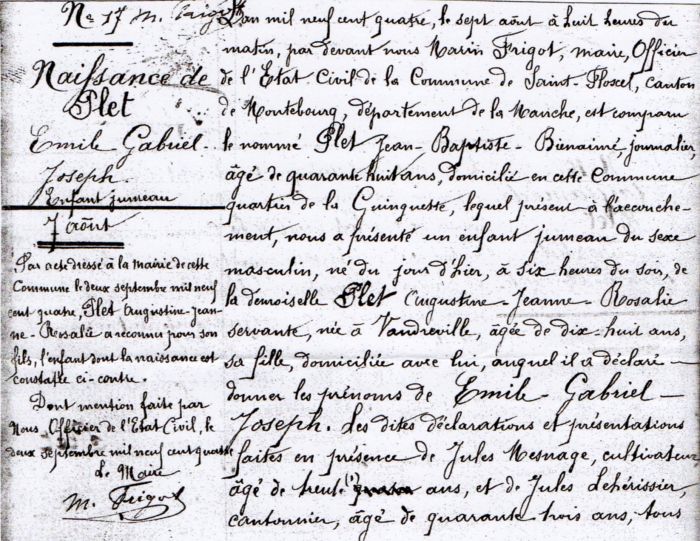 Nº 17 M. Frigot
Naissance de
Plet
Emile Gabriel
Joseph.
Enfant jumeau
7 août
Par acte dressé à la mairie de cette
Commune le deux septembre mil neuf
cent quatre, Plet Augustine-Jean-
ne-Rosalie a reconnu pour son
fils, l'enfant dont la naissance est
constatée ci-contre.
Dont mention faite par
Nous Officier de l'Etat Civil, le
deux septembre mil neuf cent quatre
Le Maire
M. Frigot
L'an mil neuf cent quatre, le sept août à huit heures du
matin, par devant nous Marin Frigot, maire, Officier
de l'Etat Civil de la Commune de Saint-Floxel, canton
de Montebourg, département de la Manche, est comparu
le nommé Plet Jean-Baptiste-Bienaimé, journalier
âgé de quarante huit ans, domicilié en cette Commune
quartier de la Guinguette, lequel présent à l'accouche-
ment, nous a présenté un enfant jumeau du sexe
masculin, né du jour d'hier, à six heures du soir, de
la demoiselle Plet Augustine-Jeanne-Rosalie
servante, née à Vaudreville, âgée de dix-huit ans,
sa fille, domiciliée avec lui, auquel il a déclaré
donner les prénoms de Emile-Gabriel-
Joseph. Les dites déclarations et présentations
faites en présence de Jules Mesnage, cultivateur
âgé de trente (1) ans, et de Jules Lehérissier,
cantonnier, âgé de quarante trois ans, tous